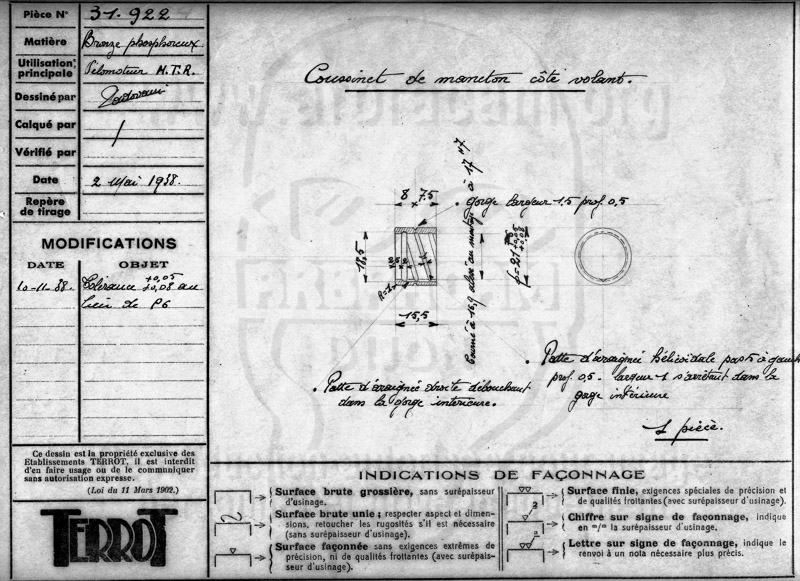 Pièce N° 31.922
Matière Bronze phosphoreux
Utilisation principale Vélomoteur M.T.R.
Dessiné par
Calqué par /
Vérifié par
Date 2 Mai 1938.
Repère de tirage
MODIFICATIONS
DATE OBJET
10-11-38. Tolérance +0,05 +0,08 au
lieu de P6
Ce dessin est la propriété exclusive des
Etablissements TERROT, il est interdit
d'en faire usage ou de le communiquer
sans autorisation expresse.
(Loi du 11 Mars 1902.)
TERROT
Coussinet de maneton côté volant.
8 7.5
gorge largeur 1.5 prof. 0,5
18,5
R=1
15,5
Tourné à 16,9 alésé au montage à 17 H7
φ=21 +0,05 +0,08
Patte d'araignée droite débouchant
dans la gorge intérieure.
Patte d'araignée hélicoïdale pas 5 à gauche
prof. 0,5 - largeur 1 s'arrêtant dans la
gorge intérieure
1 pièce.
INDICATIONS DE FAÇONNAGE
Surface brute grossière, sans surépaisseur
d'usinage.
Surface brute unie ; respecter aspect et dimen-
sions, retoucher les rugosités s'il est nécessaire
(sans surépaisseur d'usinage).
Surface façonnée sans exigences extrêmes de
précision, ni de qualités frottantes (avec surépais-
seur d'usinage).
Surface finie, exigences spéciales de précision et
de qualités frottantes (avec surépaisseur d'usinage).
Chiffre sur signe de façonnage, indique
en m/m la surépaisseur d'usinage.
Lettre sur signe de façonnage, indique le
renvoi à un nota nécessaire plus précis.